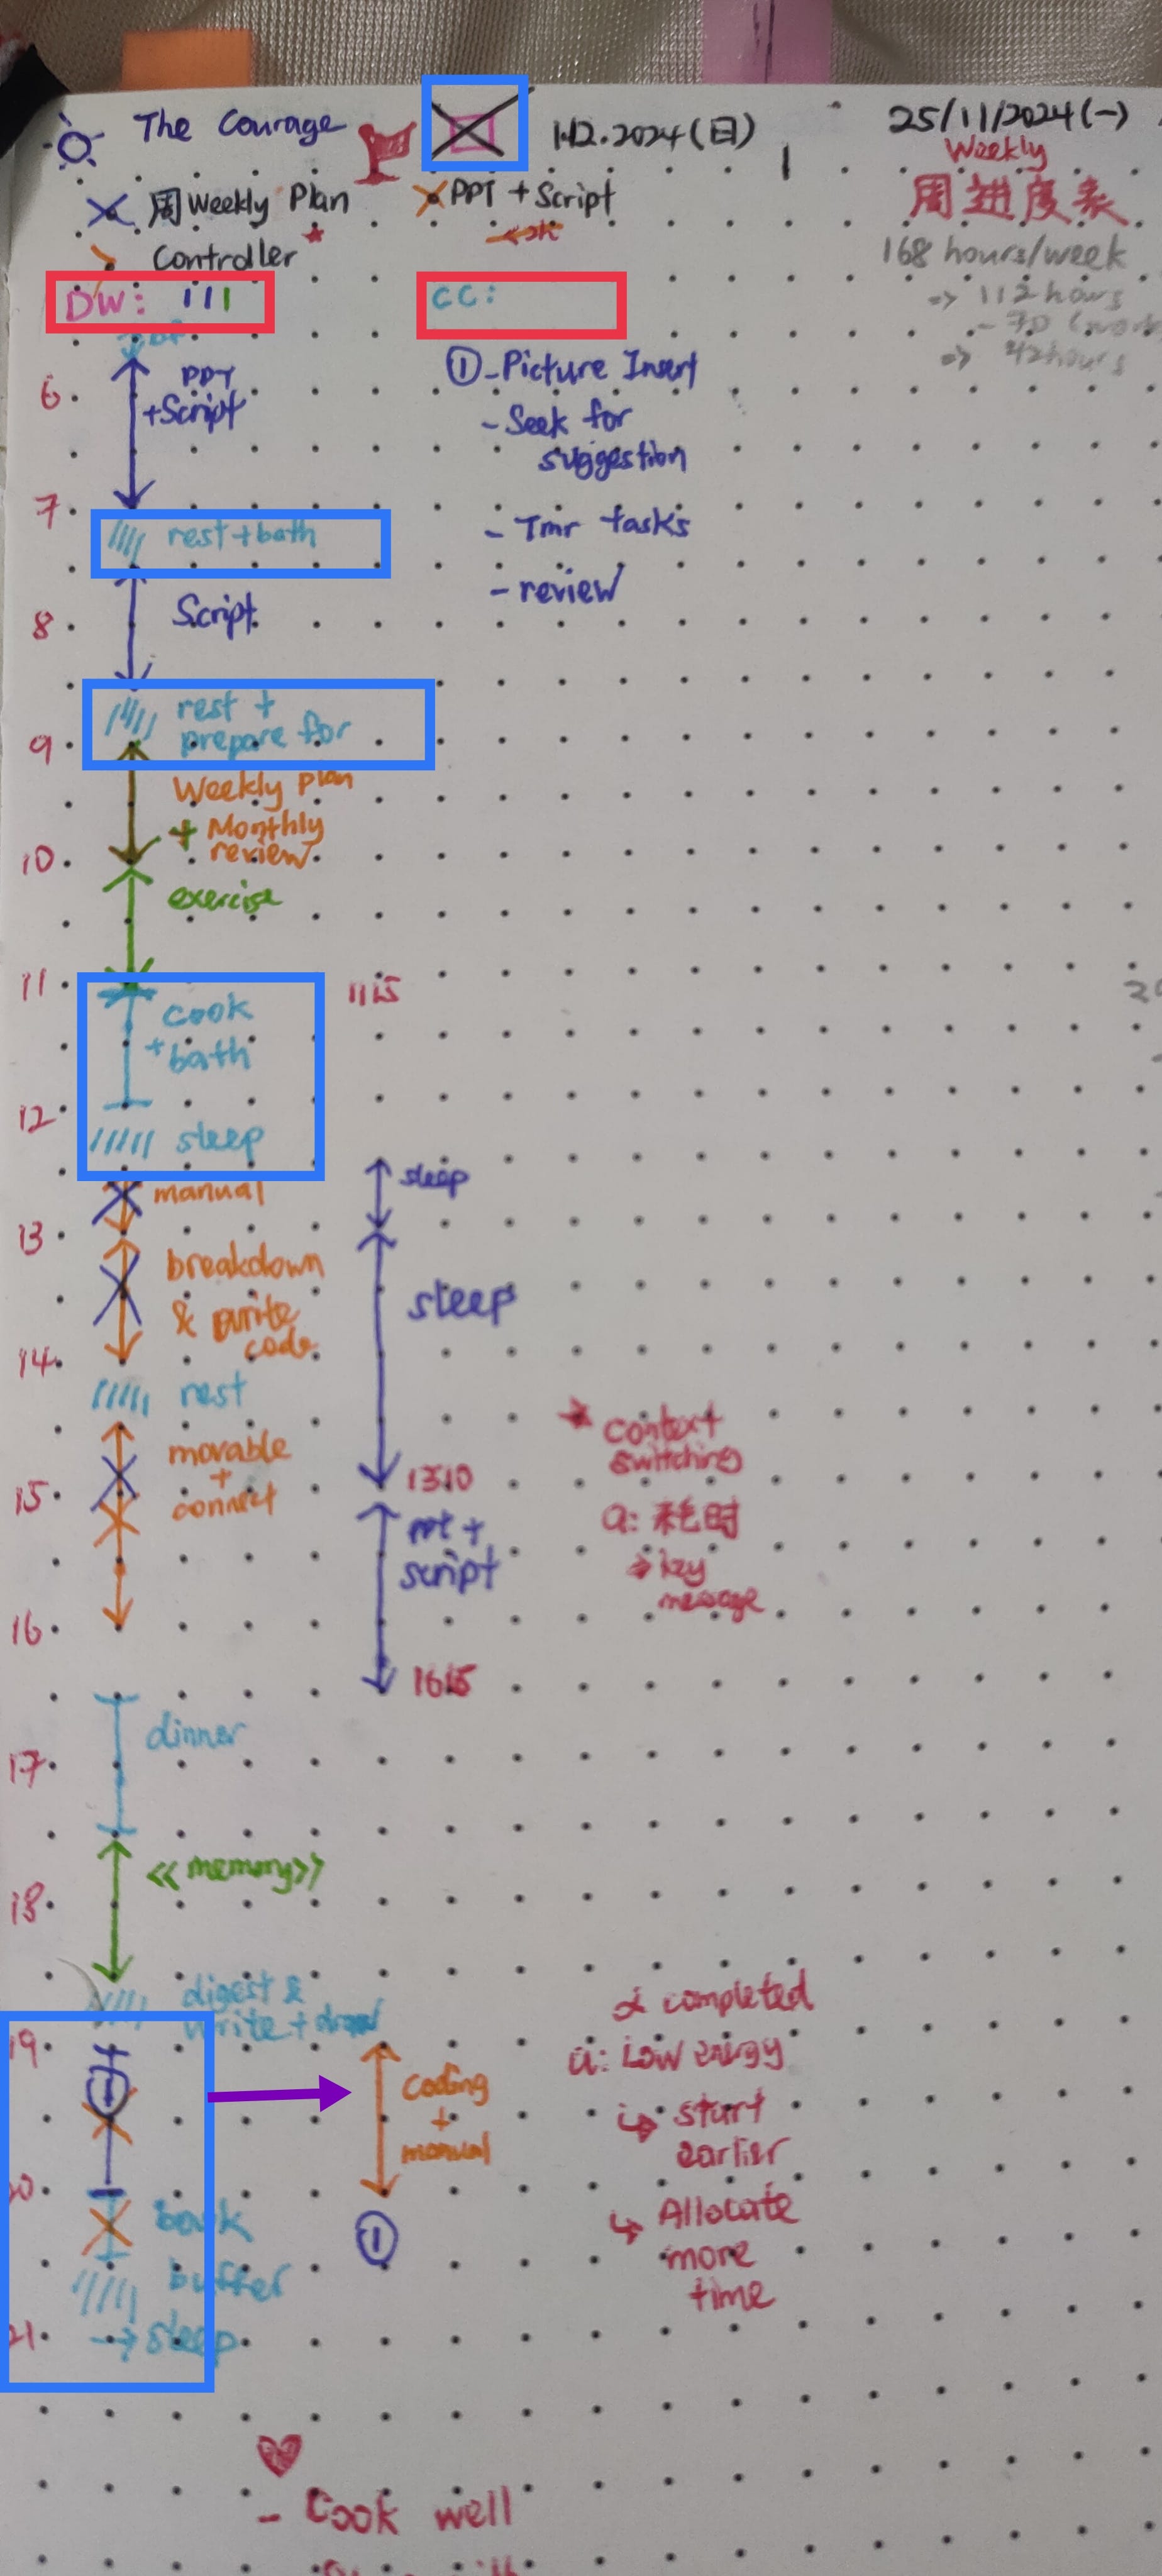 The Courage
1.12.2024(日)
25/11/2024(一)
Weekly
周进度表
168 hours/week
⇒ 112 hours
- 70 (work
⇒ 42 hours
周 Weekly Plan
Controller
PPT + Script
DW: III
CC:
6
PPT
+Script
① - Picture Insert
- Seek for
suggestion
- Tmr tasks
- review
7
rest + bath
8
Script
9
rest +
prepare for
Weekly plan
+ Monthly
review
10
exercise
11
1115
cook
+ bath
12
sleep
manual
sleep
13
breakdown
& write
code
sleep
14
rest
movable
+
connect
15
1510
ppt +
script
Context
switching
a: 耗时
→ key
message
16
1615
dinner
17
<<memory>>
18
digest &
write + draw
19
①
coding
+
manual
completed
a: Low energy
↳ start
earlier
↳ Allocate
more
time
20
①
buffer
21
→ sleep
- Cook well